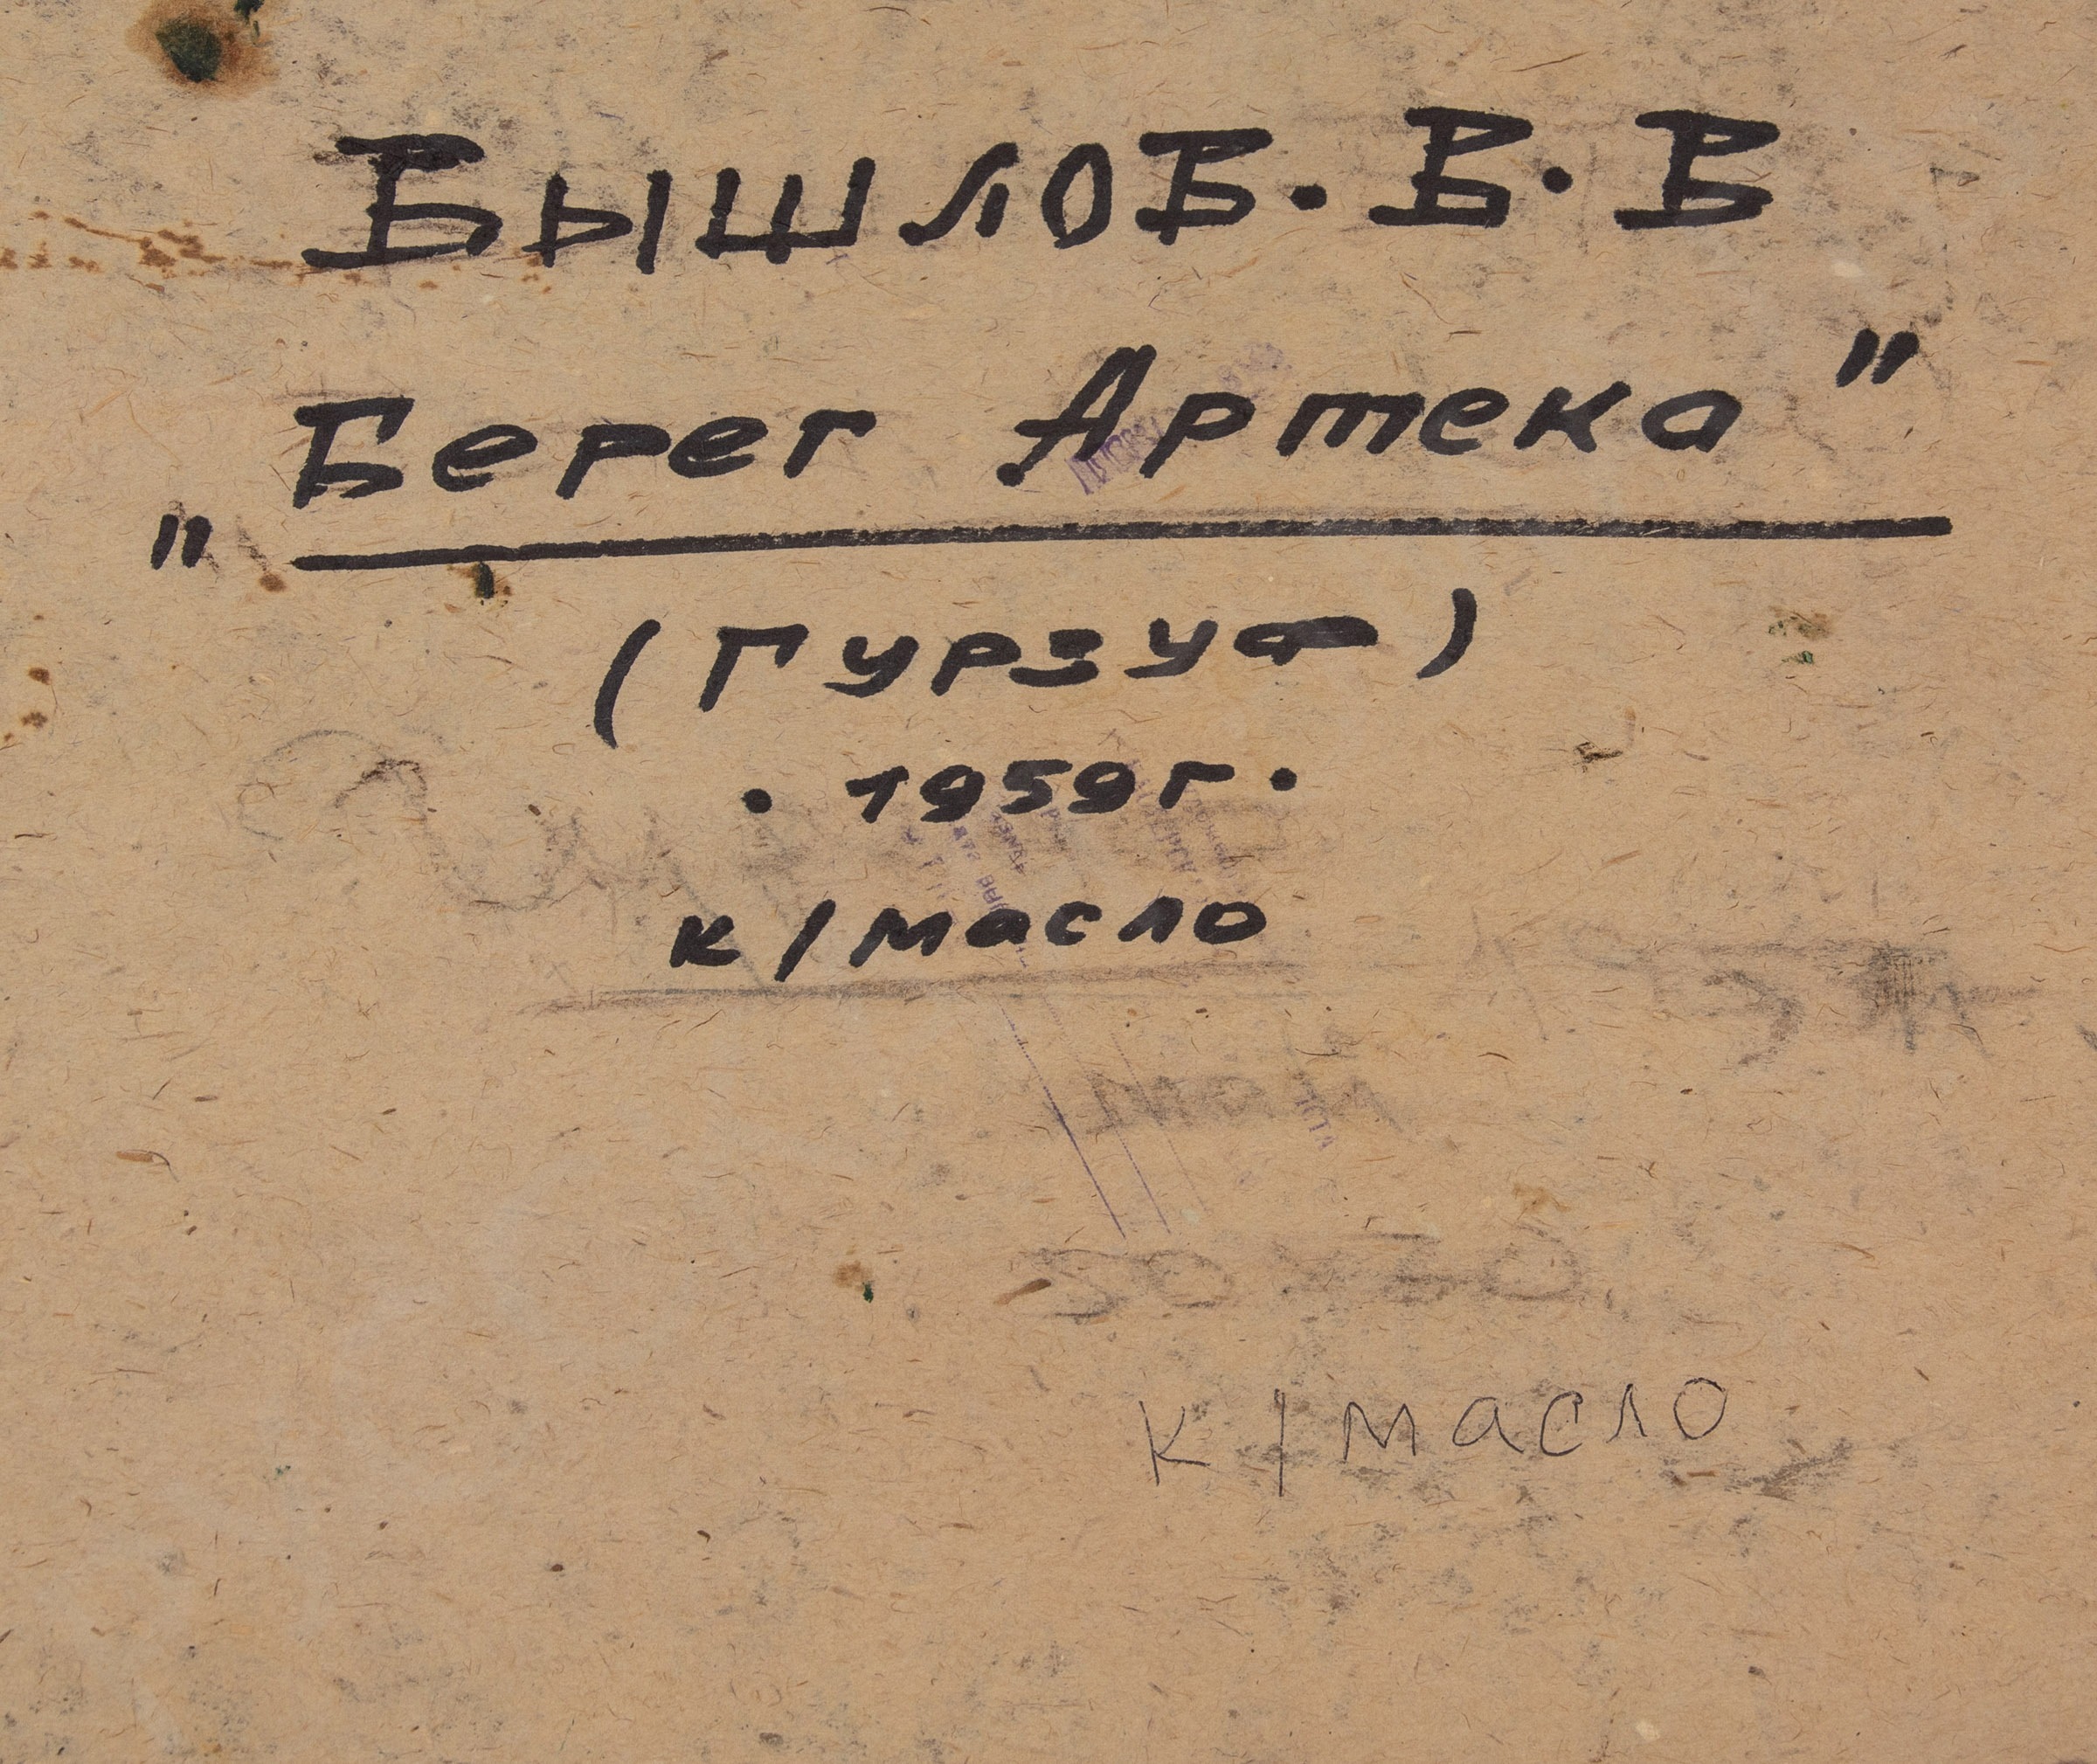 Вышлов. В. В
„Берег Артека"
(Гурзуф)
· 1959г ·
к/масло
к/масло